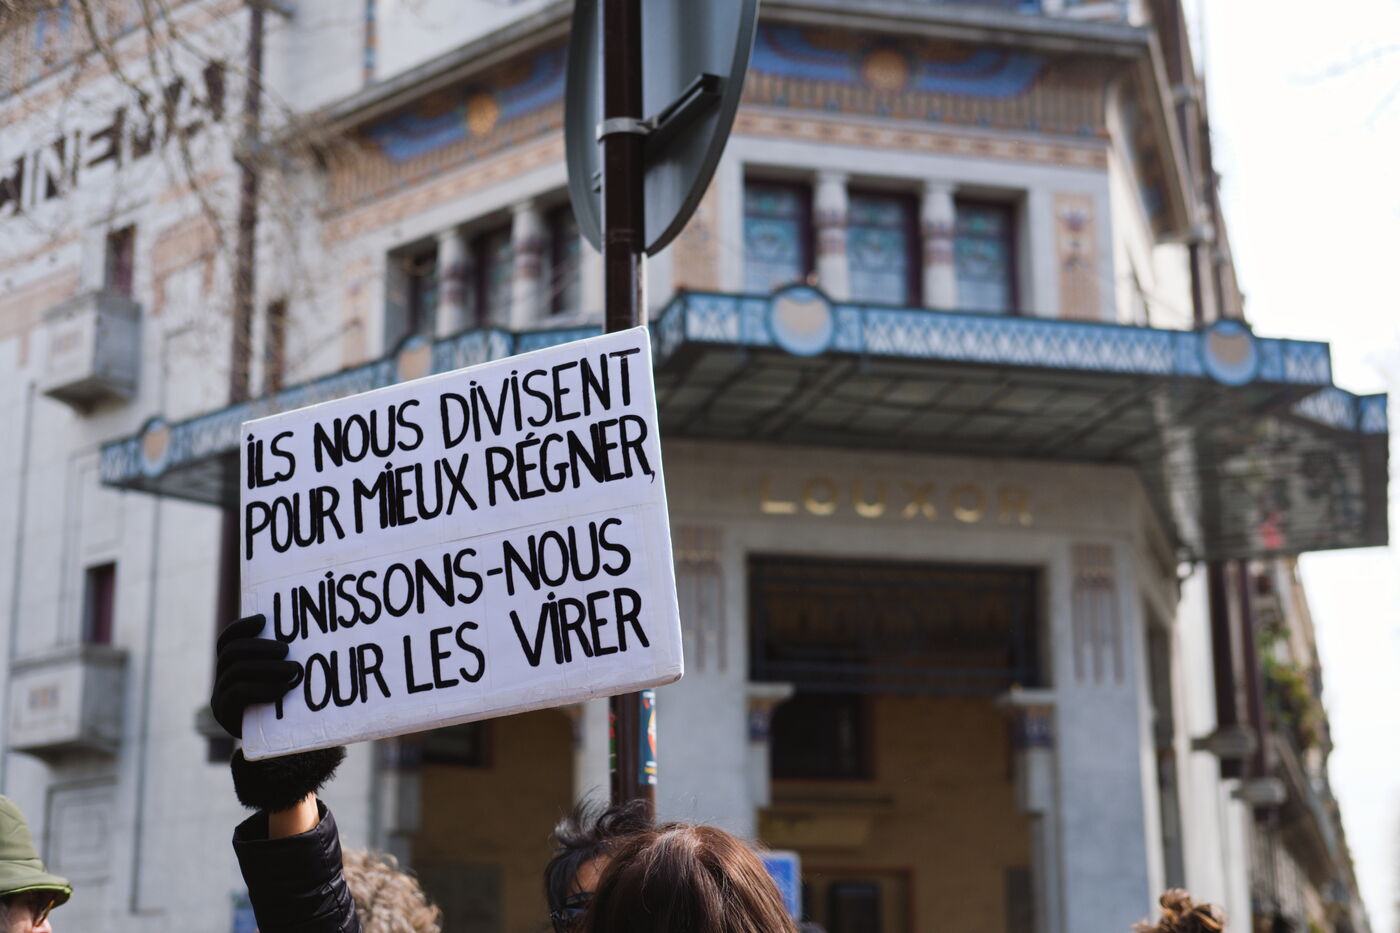 CINEMA
iLS NOUS DiViSENT
POUR MiEUX RÉGNER,
UNiSSONS-NOUS
POUR LES ViRER
LOUXOR